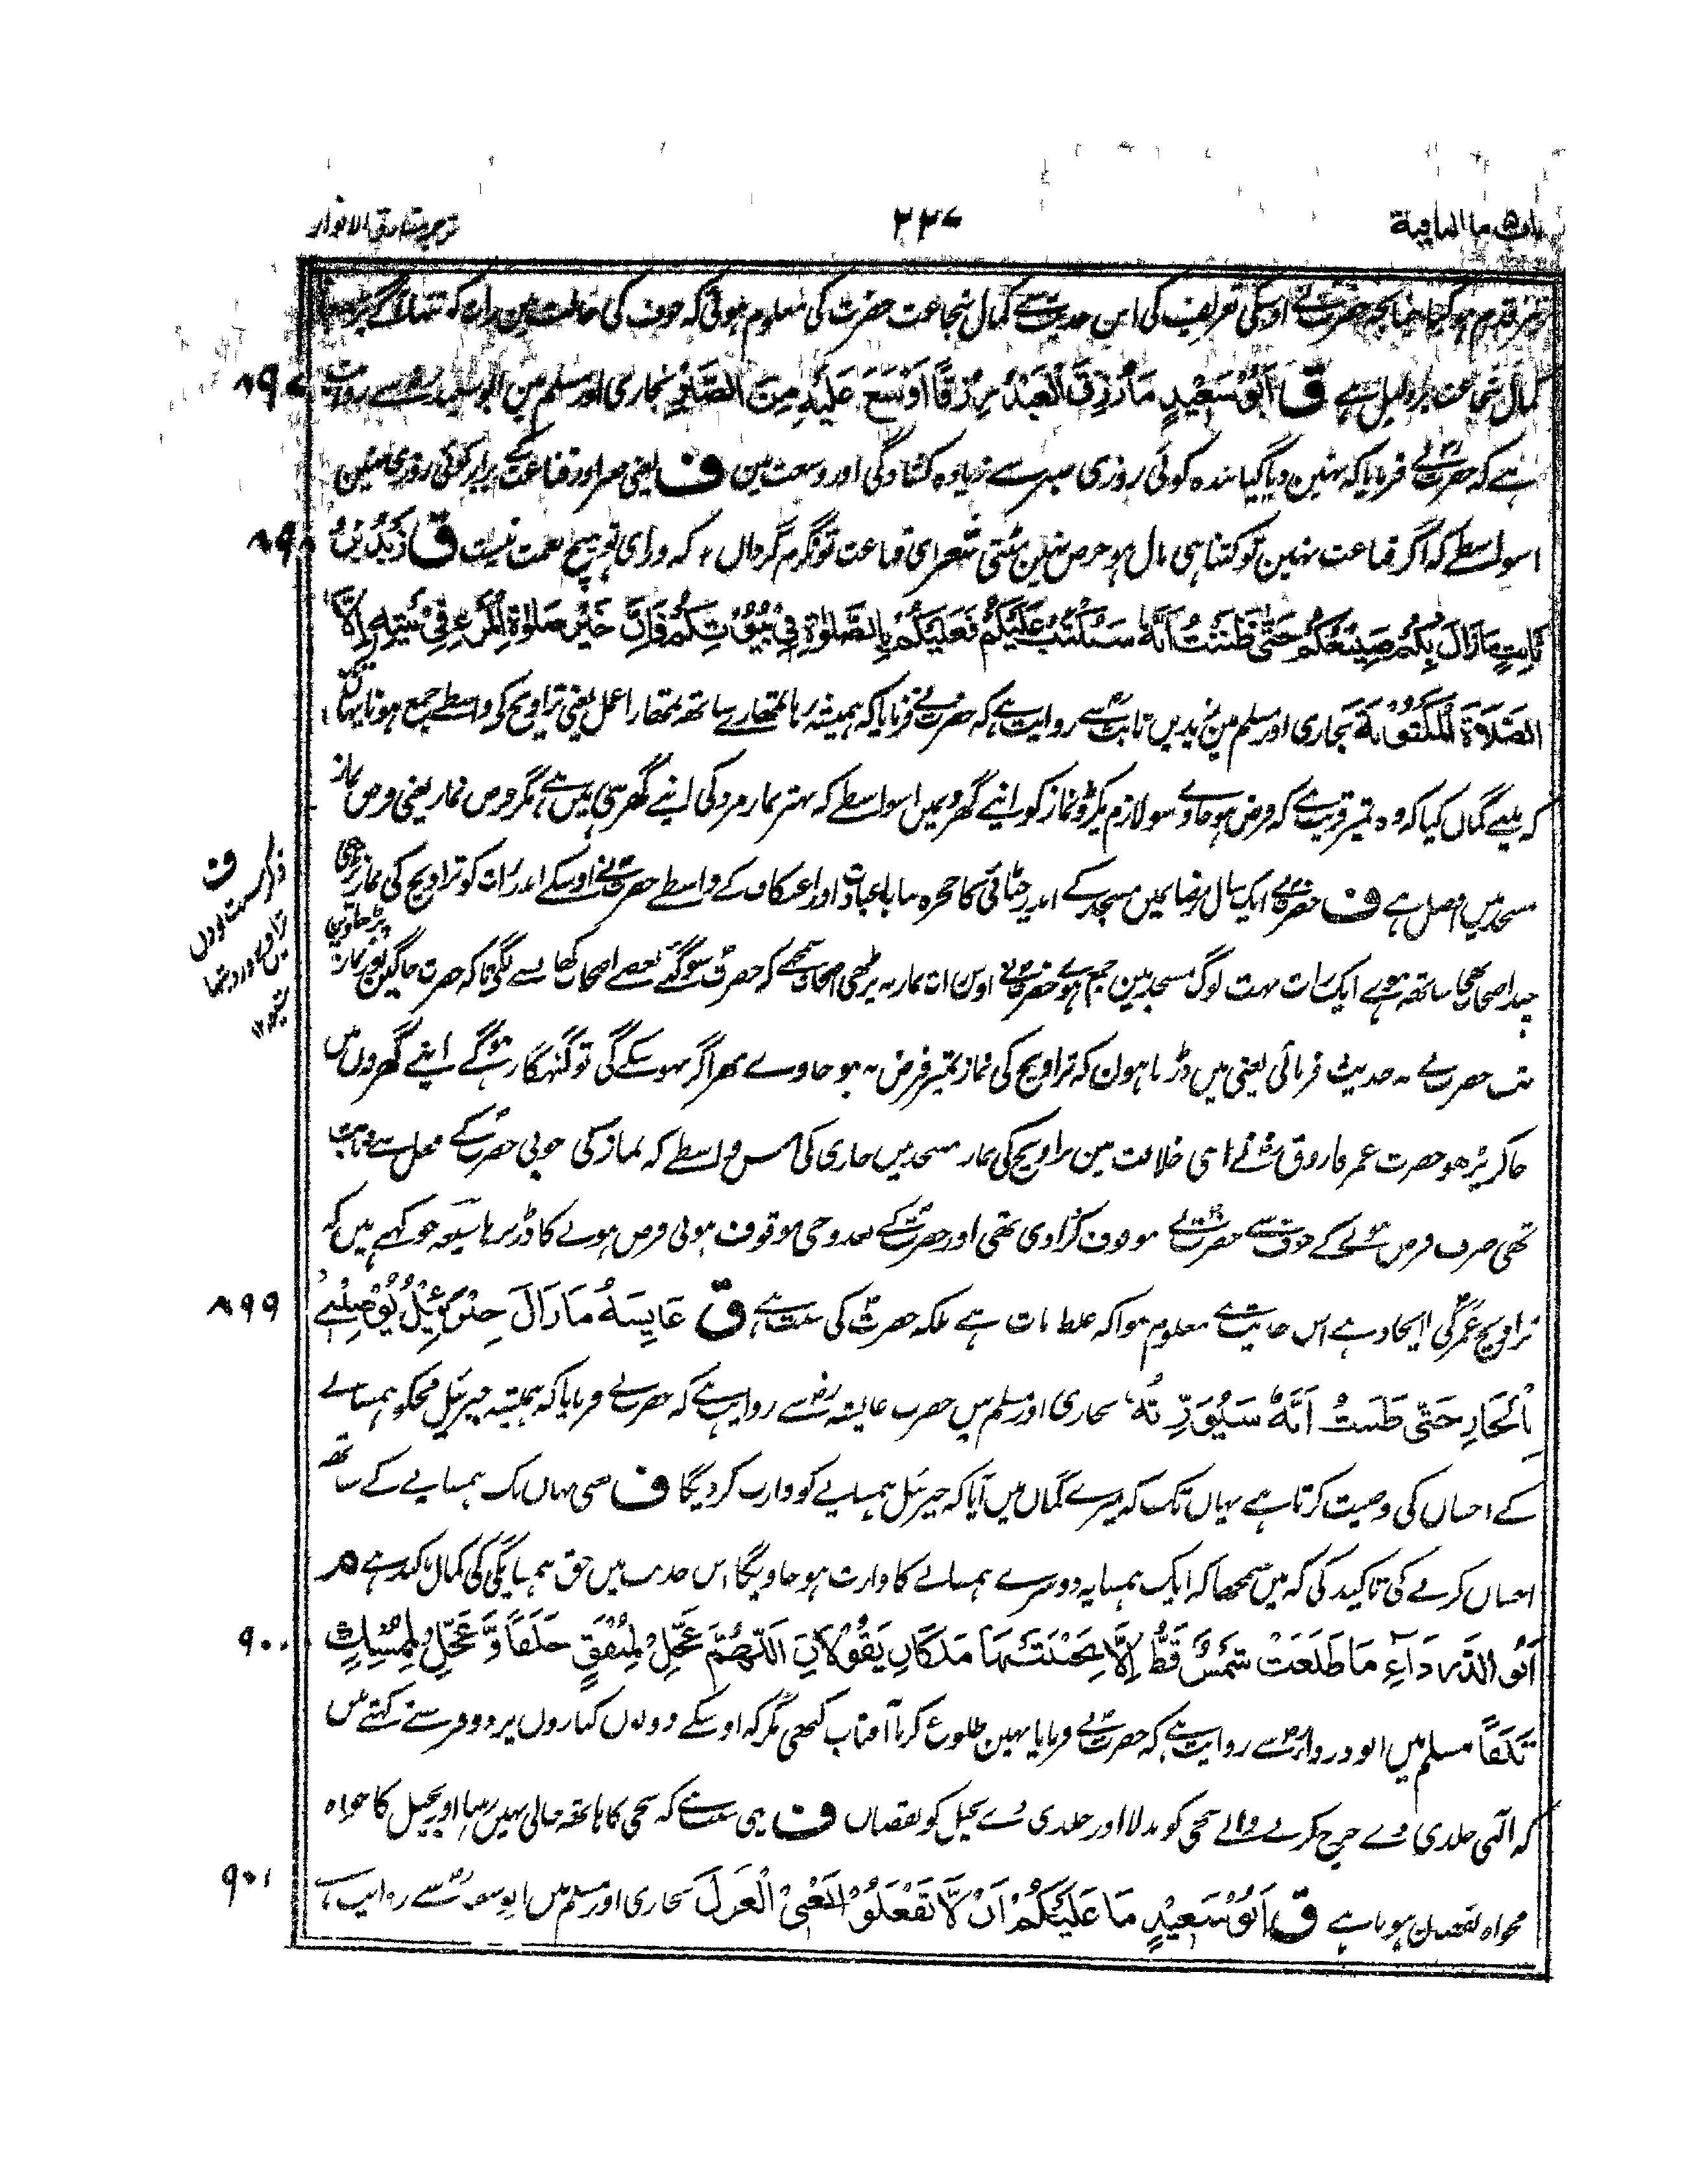 باب ما النافية ٢٢٧ ترجمہ مشارق الانوار
تعریف کی اس حدیث سے کمال شجاعت حضرت کی معلوم ہوئی کہ خوف کی حالت مین رات کو تنہا
کمال شجاعت پر دلیل ہے ق اَبُوْ سَعِيْدٍ مَا رُزِقَ الْعَبْدُ رِزْقًا اَوْسَعَ عَلَيْهِ مِنَ الصَّبْرِ بخاری اور مسلم مین ابو سعید رض سے روایت ٨٩٧
ہے کہ حضرت نے فرمایا کہ نہین دیا گیا بندہ کوئی روزی صبر سے زیادہ کشادگی اور وسعت مین ف یعنی صبر اور قناعت کے برابر کوئی روزی نہین
اسواسطے کہ اگر قناعت نہین تو کتنا ہی مال ہو حرص نہین مٹتی شعر ای قناعت تونگرم گردان ٭ کہ ورای تو ہیچ نعمت نیست ق زَيْدُ بْنُ ٨٩٨
ثَابِتٍ مَازَالَ بِكُمْ صَنِيْعُكُمْ حَتّٰى ظَنَنْتُ اَنَّهٗ سَيُكْتَبُ عَلَيْكُمْ فَعَلَيْكُمْ بِالصَّلٰوةِ فِيْ بُيُوْتِكُمْ فَاِنَّ خَيْرَ صَلٰوةِ الْمَرْءِ فِيْ بَيْتِهٖ اِلَّا
الصَّلَاةَ الْمَكْتُوْبَةَ بخاری اور مسلم مین زید بن ثابت سے روایت ہے کہ حضرت نے فرمایا کہ ہمیشہ رہا تمھارے ساتھ تمھارا عمل یعنی تراویح کے واسطے جمع ہونا یہانتک
کہ مینے گمان کیا کہ وہ تمپر قریب ہے کہ فرض ہو جاوے سو لازم پکڑو نماز کو اپنے گھرونمیں اسواسطے کہ بہتر نماز مرد کی اپنے گھر ہی میں ہے، مگر فرض نماز یعنی فرض نماز
مسجد میں افضل ہے ف حضرت نے ایک سال رمضانمیں مسجد کے اندر چٹائی کا حجرہ بنایا عبادت اور اعتکاف کے واسطے حضرت نے اوسکے اندر رات کو تراویح کی نماز پڑھی
چند اصحاب بھی ساتھ ہوے ایک رات بہت لوگ مسجد مین جمع ہوے حضرت نے اوس رات نماز نہ پڑھی اصحاب سمجھے کہ حضرت سو گئے بعضے اصحاب کھانسنے لگے تا کہ حضرت جاگین اور نماز پڑھاوین
تب حضرت نے یہ حدیث فرمائی یعنی میں ڈرتا ہون کہ تراویح کی نماز تمپر فرض نہ ہو جاوے پھر اگر نہو سکے گی تو گنہگار ہو گے اپنے گھروں میں
جا کر پڑھو حضرت عمر فاروق رض نے اپنی خلافت مین تراویح کی نماز مسجد میں جاری کی اس واسطے کہ نماز کی خوبی حضرت کے فعل سے ثابت
تھی صرف فرض ہونے کے خوف سے حضرت نے موقوف کرا دی تھی اور حضرت کے بعد وحی موقوف ہوئی فرض ہونے کا ڈر نرہا شیعہ جو کہتے ہیں کہ
تراویح عمر کی ایجاد ہے اس حدیث سے معلوم ہوا کہ غلط بات ہے بلکہ حضرت کی سنت ہے ق عَايِشَةُ مَازَالَ جِبْرَئِيْلُ يُوْصِيْنِيْ ٨٩٩
بِالْجَارِ حَتّٰى ظَنَنْتُ اَنَّهٗ سَيُوَرِّثُهٗ بخاری اور مسلم میں حضرت عایشہ رض سے روایت ہے کہ حضرت نے فرمایا کہ ہمیشہ جبرئیل مجکو ہمسائے
کے احسان کی وصیت کرتا ہے یہاں تک کہ میرے گمان میں آیا کہ جبرئیل ہمسایے کو وارث کر دیگا ف یعنی یہاں تک ہمسایے کے ساتھ
احسان کرنے کی تاکید کی کہ میں سمجھا کہ ایک ہمسایہ دوسرے ہمسائے کا وارث ہو جاویگا اس حدیث میں حق ہمسایگی کی کمال تاکید ہے م
اَبُو الدَّرْدَآءِ مَا طَلَعَتْ شَمْسٌ قَطُّ اِلَّا بِجَنْبَتَيْهَا مَلَكَانِ يَقُوْلَانِ اَللّٰهُمَّ عَجِّلْ لِمُنْفِقٍ خَلَفًا وَّ عَجِّلْ لِمُمْسِكٍ ٩٠٠
تَلَفًا مسلم میں ابو دردا رض سے روایت ہے کہ حضرت نے فرمایا نہین طلوع کرتا آفتاب کبھی مگر کہ اوسکے دونوں کناروں پر دو فرشتے کہتے ہیں
کہ الٰہی جلدی دے خرچ کرنے والے سخی کو بدلا اور جلدی دے بخیل کو نقصان ف یہی سبب ہے کہ سخی کا ہاتھ خالی نہیں رہتا اور بخیل کا خواہ
مخواہ نقصان ہوتا ہے ق اَبُوْ سَعِيْدٍ مَا عَلَيْكُمْ اَنْ لَّا تَفْعَلُوْا يَعْنِى الْعَزْلَ بخاری اور مسلم میں ابو سعید سے روایت ہے ٩٠١